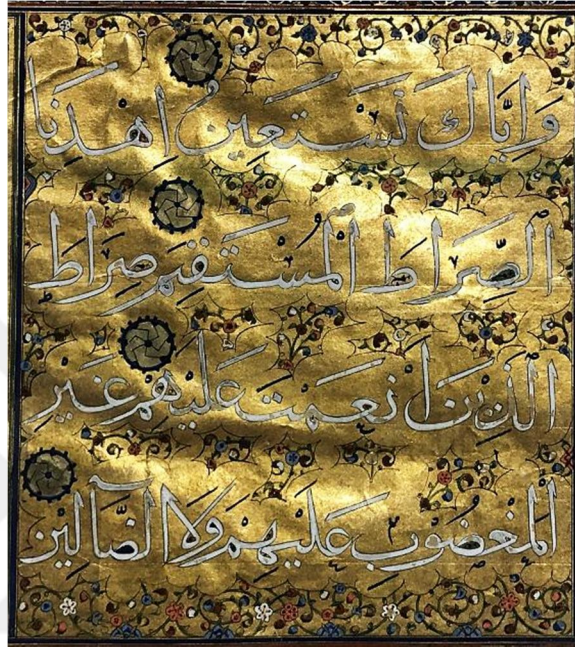 وَإِيَّاكَ نَسْتَعِينُ اهْدِنَا
الصِّرَاطَ الْمُسْتَقِيمَ صِرَاطَ
الَّذِينَ أَنْعَمْتَ عَلَيْهِمْ غَيْرِ
الْمَغْضُوبِ عَلَيْهِمْ وَلَا الضَّالِّينَ